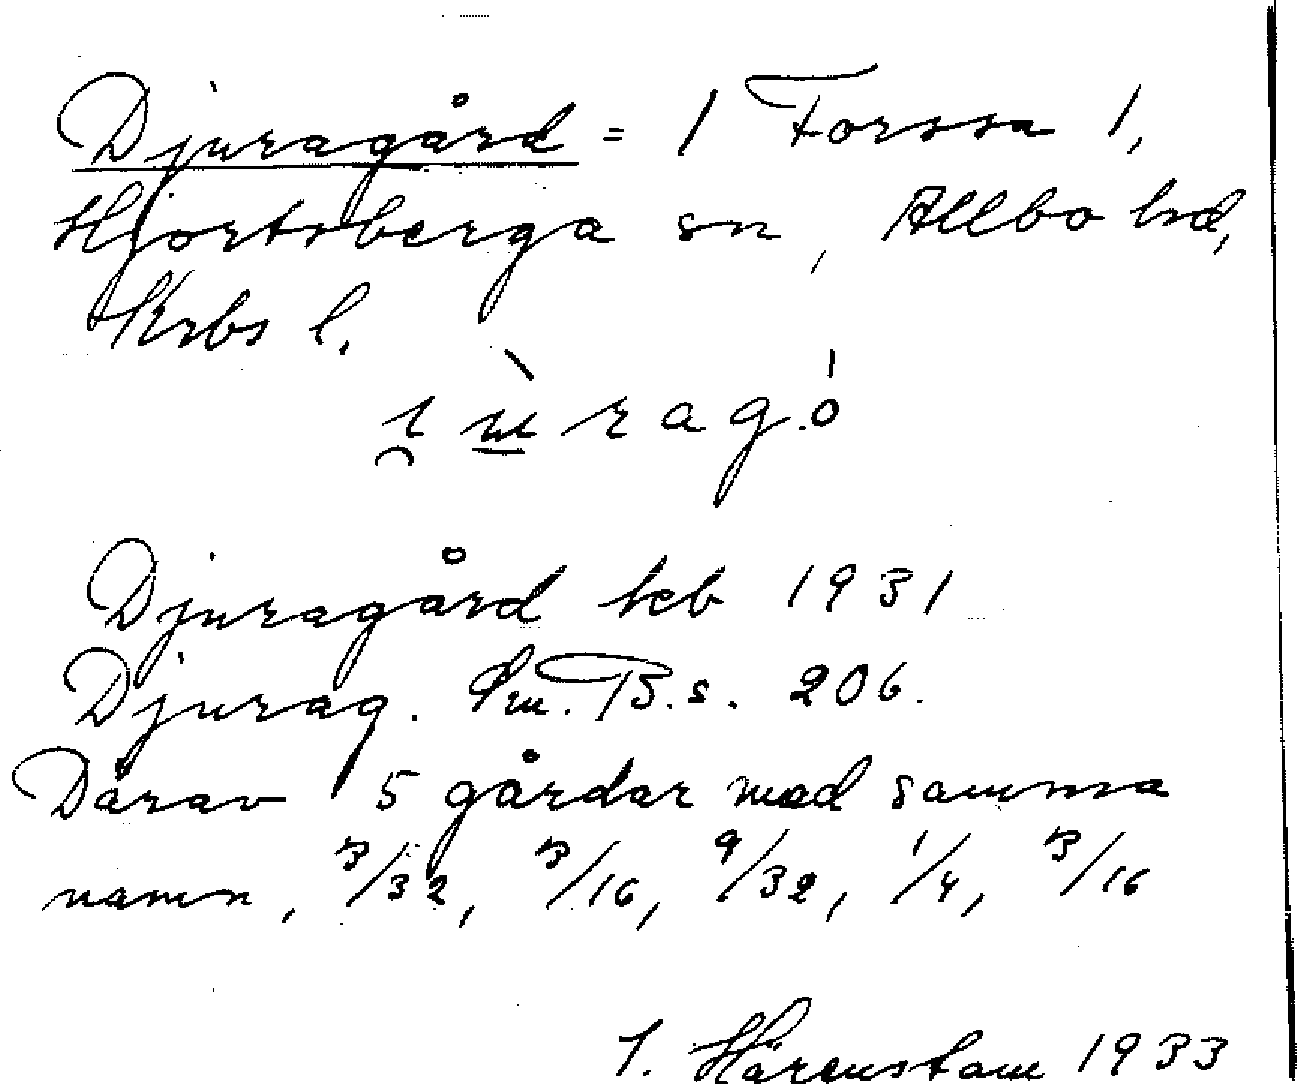 Djuragård = 1 Forssa 1,
Hjortsberga sn, Allbo hd,
Krbs l.
i̯ùragó
Djuragård Jeb 1931
Djurag. Sm. B. s. 206.
Därav 5 gårdar med samma
namn, 3/32, 3/16, 9/32, 1/4, 3/16
J. Hårenstam 1933